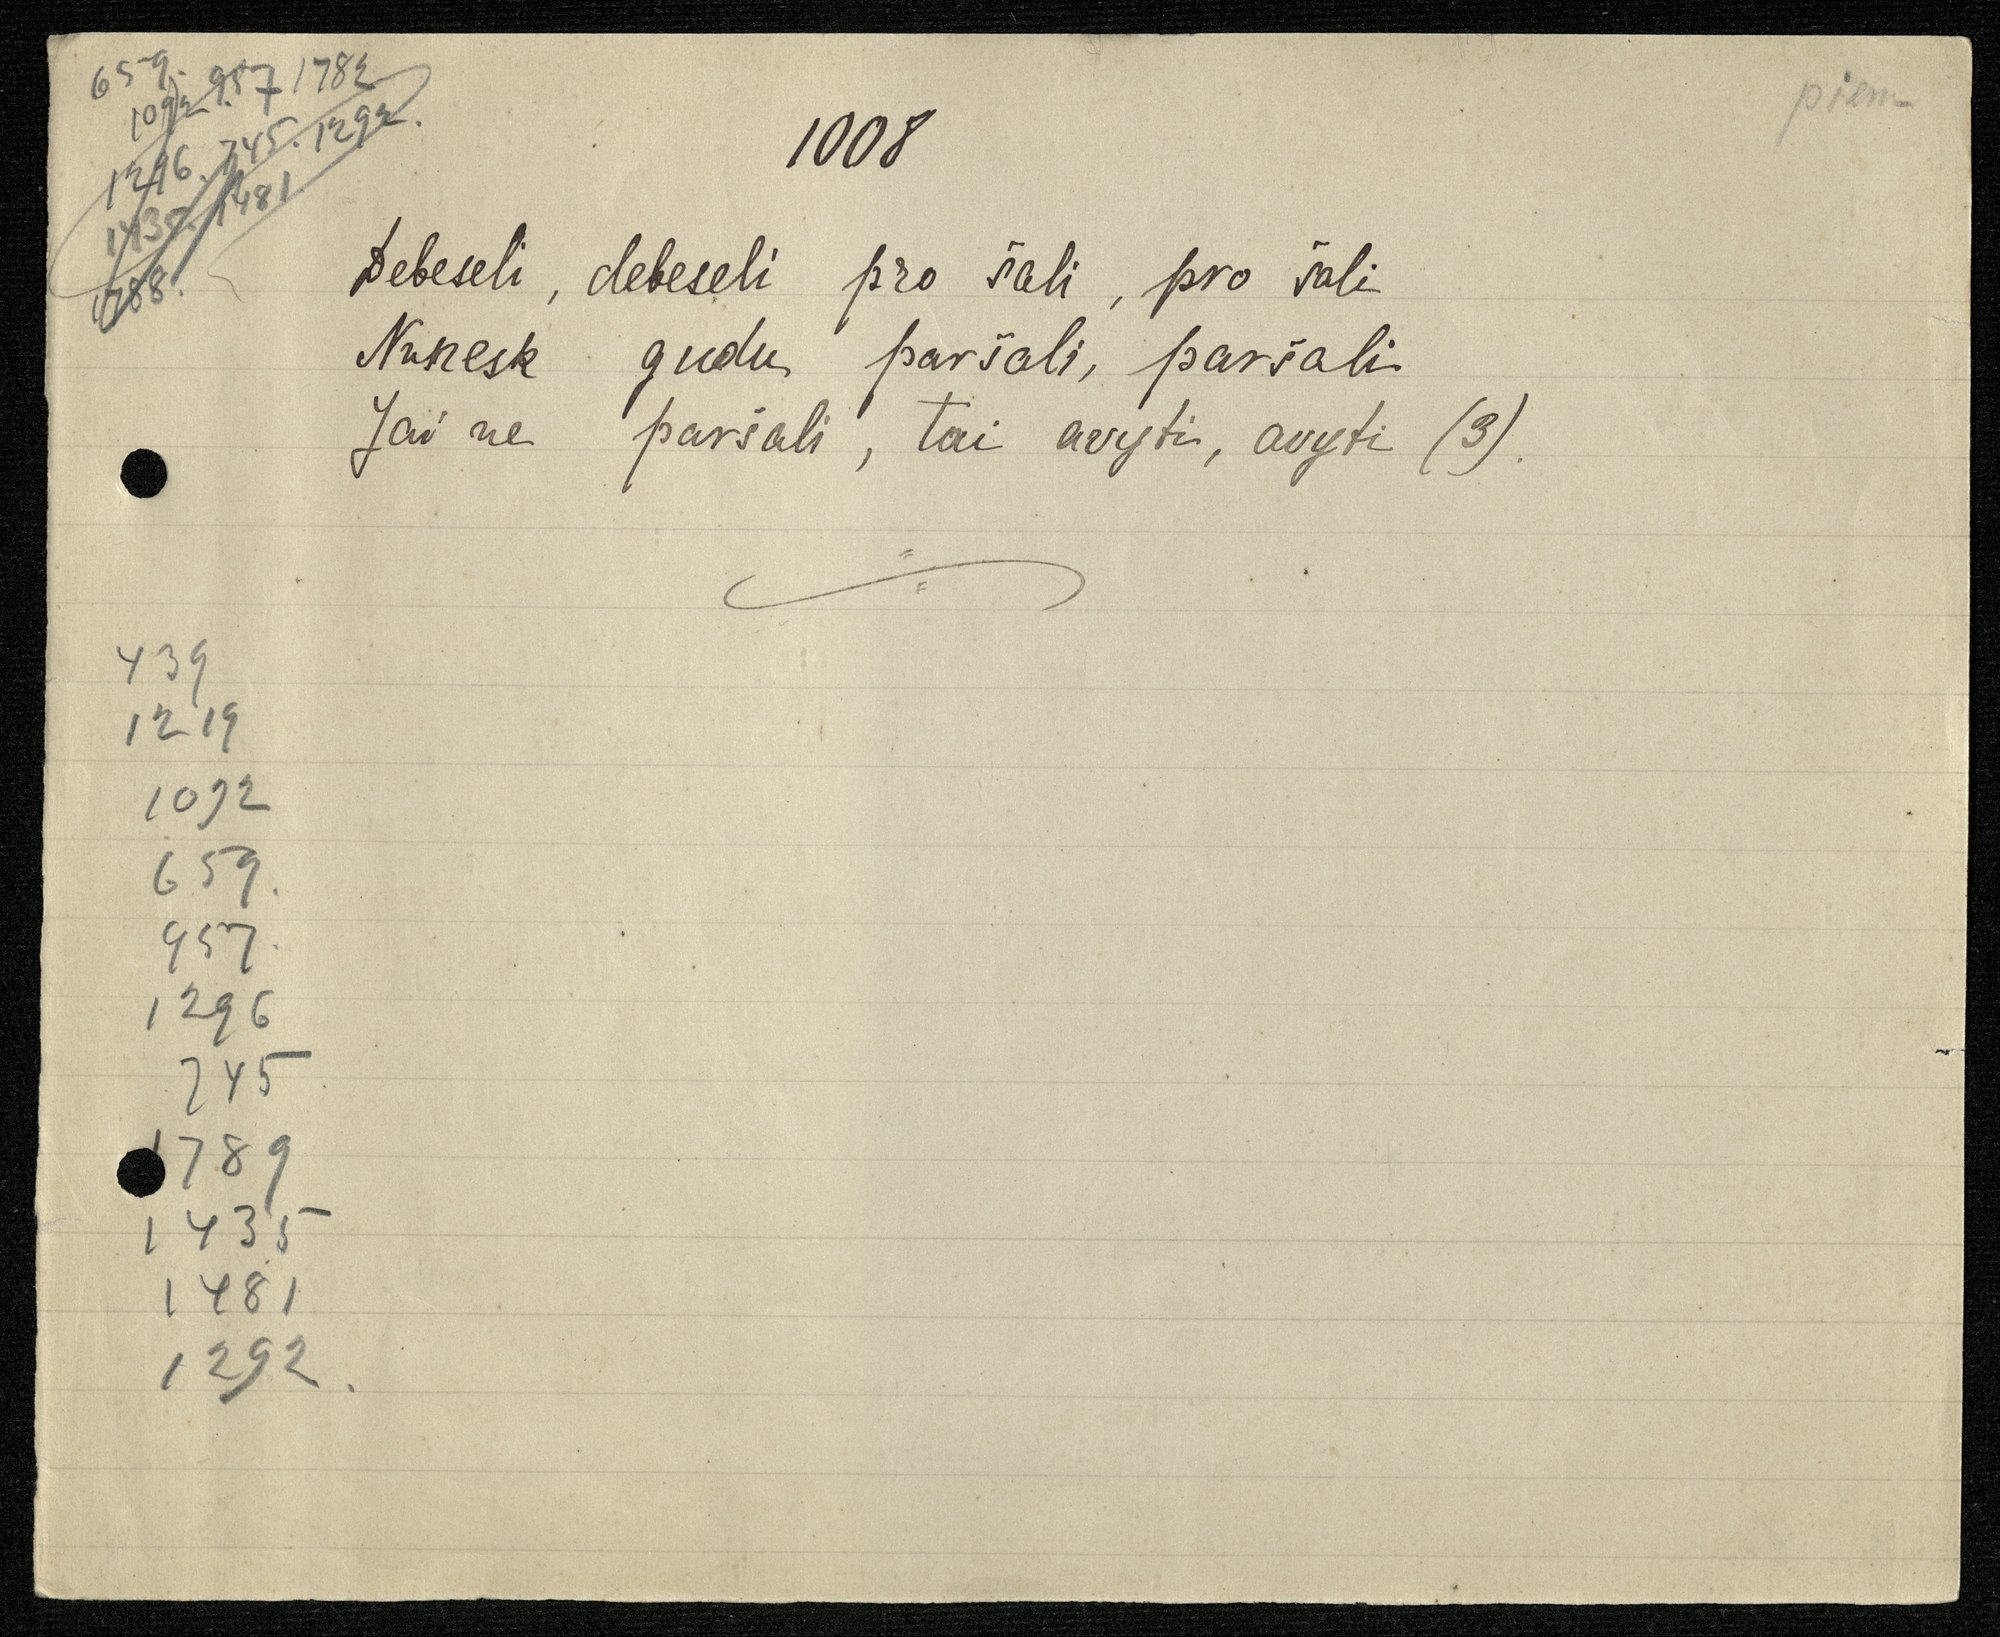 659.
1092. 957 1782
1296. 745. 1292.
1435. 1481
1788.
piem
1008
Debeseli, debeseli pro šali, pro šali
Nunesk gudu paršali, paršali
Jai ne paršali, tai avyti, avyti (3).
439
1219
1092
659.
957.
1296
745
1789
1435
1481
1292.